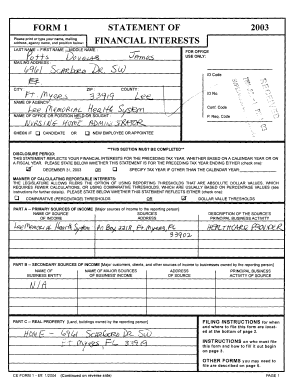 FORM 1 STATEMENT OF 2003
Please print or type your name, mailing address, agency name, and position below:
FINANCIAL INTERESTS
LAST NAME -- FIRST NAME -- MIDDLE NAME
FOR OFFICE USE ONLY:
Potts Douglas James
MAILING ADDRESS
6961 Scarboro Dr. SW
CITY : ZIP : COUNTY :
Ft Myers 33919 Lee
NAME OF AGENCY
Lee Memorial Health System
NAME OF OFFICE OR POSITION HELD OR SOUGHT
Nursing Home Administrator
CHECK IF CANDIDATE OR NEW EMPLOYEE OR APPOINTEE
ID Code
ID No.
Conf. Code
P. Req. Code
**THIS SECTION MUST BE COMPLETED**
DISCLOSURE PERIOD:
THIS STATEMENT REFLECTS YOUR FINANCIAL INTERESTS FOR THE PRECEDING TAX YEAR, WHETHER BASED ON A CALENDAR YEAR OR ON A FISCAL YEAR. PLEASE STATE BELOW WHETHER THIS STATEMENT IS FOR THE PRECEDING TAX YEAR ENDING EITHER (check one):
DECEMBER 31, 2003 OR SPECIFY TAX YEAR IF OTHER THAN THE CALENDAR YEAR:
MANNER OF CALCULATING REPORTABLE INTERESTS:
THE LEGISLATURE ALLOWS FILERS THE OPTION OF USING REPORTING THRESHOLDS THAT ARE ABSOLUTE DOLLAR VALUES, WHICH REQUIRES FEWER CALCULATIONS, OR USING COMPARATIVE THRESHOLDS, WHICH ARE USUALLY BASED ON PERCENTAGE VALUES (see instructions for further details). PLEASE STATE BELOW WHETHER THIS STATEMENT REFLECTS EITHER (check one):
COMPARATIVE (PERCENTAGE) THRESHOLDS OR DOLLAR VALUE THRESHOLDS
PART A -- PRIMARY SOURCES OF INCOME [Major sources of income to the reporting person]
NAME OF SOURCE OF INCOME
SOURCE'S ADDRESS
DESCRIPTION OF THE SOURCE'S PRINCIPAL BUSINESS ACTIVITY
Lee Memorial Health System P.O. Box 2218, Ft Myers, FL Healthcare Provider
33902
PART B -- SECONDARY SOURCES OF INCOME [Major customers, clients, and other sources of income to businesses owned by the reporting person]
NAME OF BUSINESS ENTITY
NAME OF MAJOR SOURCES OF BUSINESS' INCOME
ADDRESS OF SOURCE
PRINCIPAL BUSINESS ACTIVITY OF SOURCE
N/A
PART C -- REAL PROPERTY [Land, buildings owned by the reporting person]
Home - 6961 Scarboro Dr SW
Ft Myers, FL 33919
FILING INSTRUCTIONS for when and where to file this form are located at the bottom of page 2.
INSTRUCTIONS on who must file this form and how to fill it out begin on page 3.
OTHER FORMS you may need to file are described on page 6.
CE FORM 1 - Eff. 1/2004 (Continued on reverse side) PAGE 1